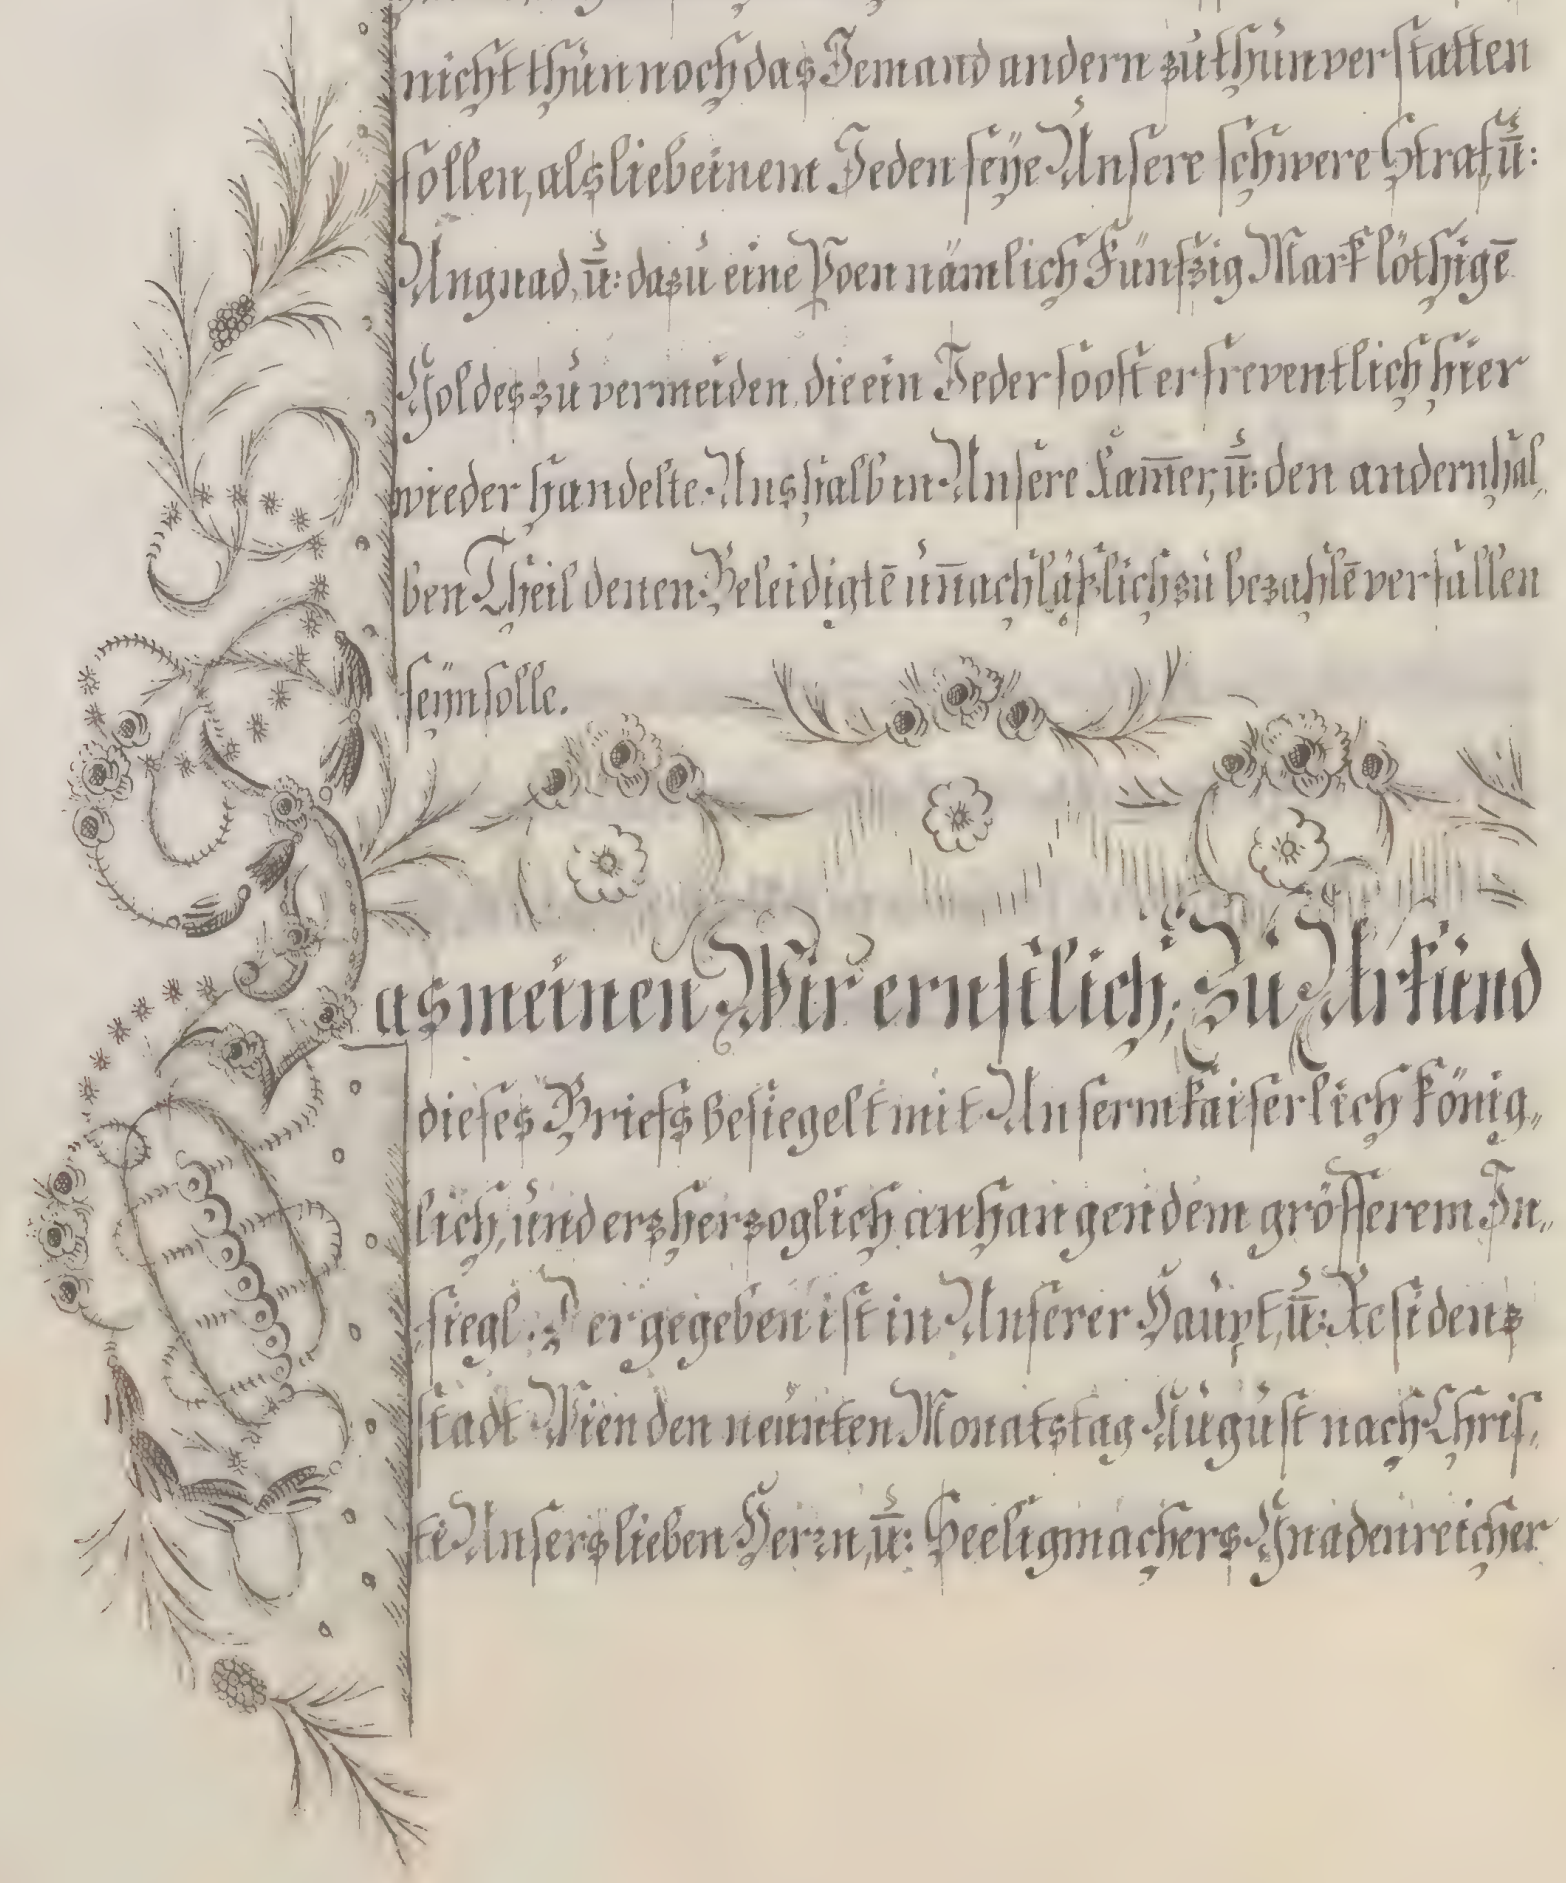 nicht thun noch das Jemand andern zu thun verstatten
sollen, als lieb einem Jeden seÿe Unsere schwere Straf, ū:
Ungnad, ū: dazu eine Poen nämlich Fünfzig Mark löthigē
Goldes zu vermeiden, die ein Jeder so oft er freventlich hier
wieder handelte Uns halb in Unsere Kam̄er, ū: den andern hal„
ben Theil denen Beleidigtē un̄achläßlich zu bezahlē verfallen
seÿn solle.
Das meinen Wir ernstlich; Zu Urkund
dieses Briefs besiegelt mit Unserm kaiserlich könig„
lich, und erzherzoglich anhangendem grösserem In„
siegl. Der gegeben ist in Unserer Haupt, ū: Residenz
stadt Wien den neunten Monatstag August nach Chris„
ti Unsers lieben Herrn, ū: Seeligmachers Gnadenreicher